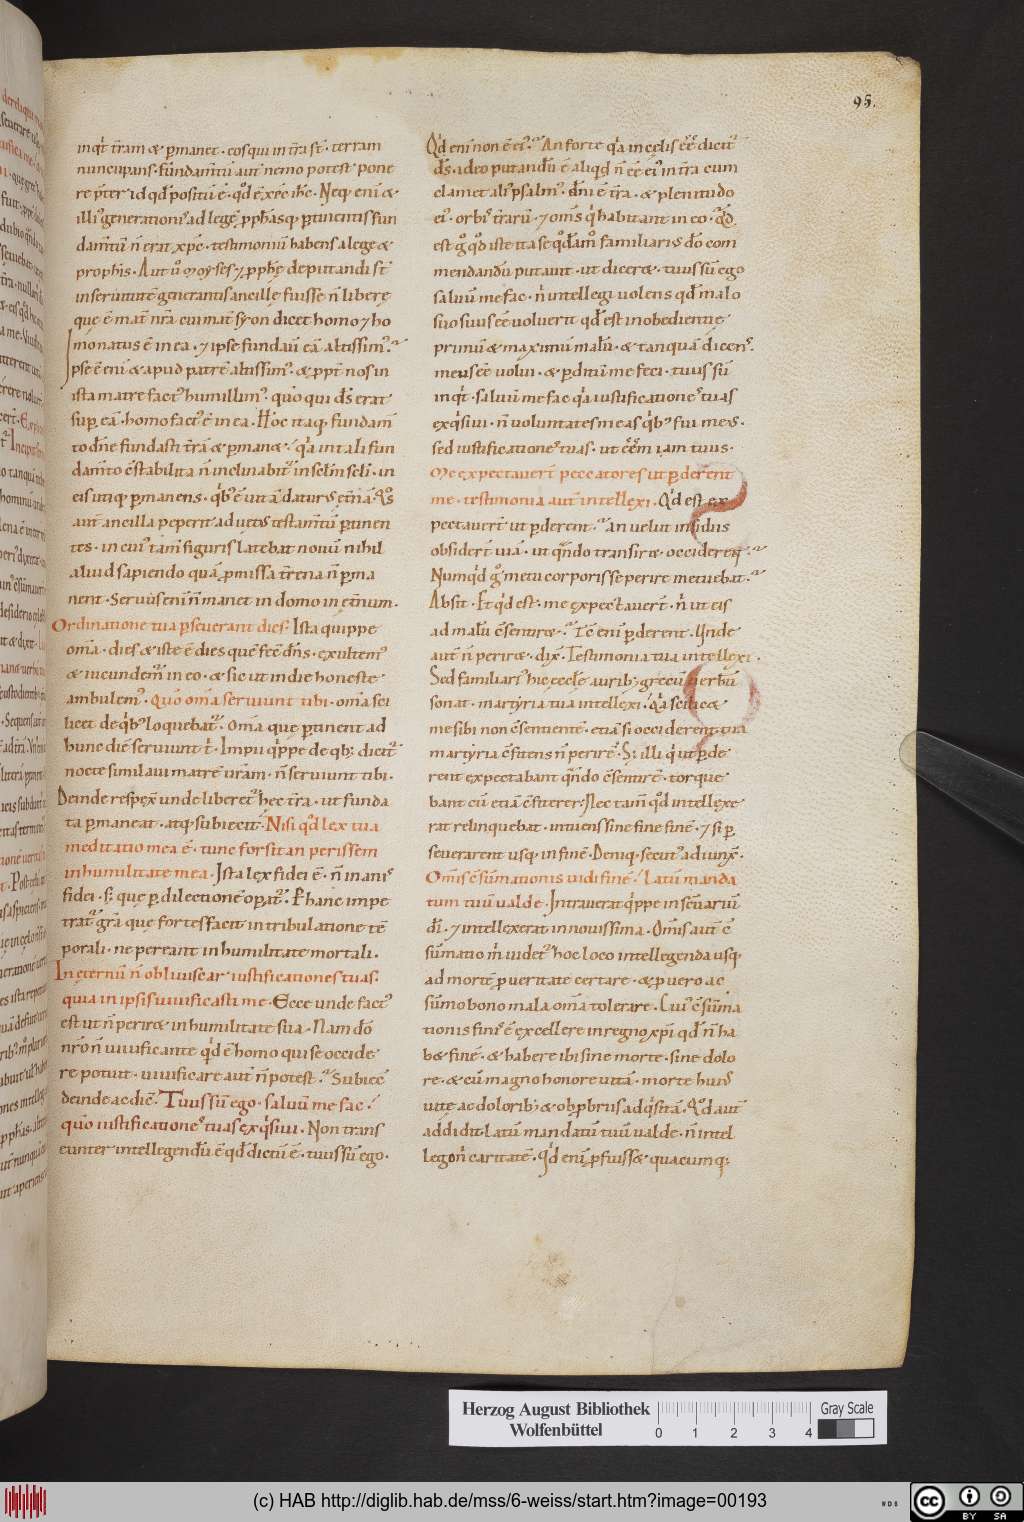 95.
inqt t̄ram & ꝑmanet · eos qui in t̄ra st̄ · terram
nuncupans · fundam̄tū aut̄ nemo potest pone
re p̄ter id qd̄ positū ē · qd̄ ē xp̄c ih̄c · Neq; enī &
illi generationi ad legē ꝓph̄asq; ꝑtinentis fun
dam̄tū n̄ erat xp̄c · testimoniū habens a lege &
proph̄is · Aut ū moyses ⁊ ꝓph̄ę deputandi st̄
in seruitutē generantis ancillę fuisse n̄ liberę
quę ē mat̄ nr̄a cui mat̄ syon dicet homo ⁊ ho
mo natus ē in ea · ⁊ ipse fundauī eā altissim᷒ ·
Ipse ē enī & apud patrē altissim᷒ · & ꝓpt̄ nos in
ista matre fact᷒ humillim᷒ · quō qui ds̄ erat
suꝑ eā · homo fact᷒ ē in ea · Hoc itaq; fundam̄
to dn̄e fundasti t̄rā & ꝑman& · qa in tali fun
dam̄to ēstabilita n̄ inclinabit᷑ in sclm̄ scli · in
eis utiq; ꝑmanens · qb᷒ ē uitā daturus et̄nā Qs
aut̄ ancilla peperit ad uet᷒ testam̄tū ꝑtinen
tes · in cui᷒ tam̄ figuris latebat nouū nihil
aliud sapiendo quā ꝓmissa t̄rena n̄ ꝑma
nent · Seruus enī n̄ manet in domo in et̄num ·
Ordinatione tua ꝑseuerant dies · Ista quippe
om̄a · dies & iste ē dies quē fēc dn̄s · exultem᷒
& iucundem᷑ in eo · & sic ut in die honeste
ambulem᷒ · Quō om̄a seruiunt tibi · om̄a sci
licet de qb᷒ loquebat᷑ · om̄a quę ꝑtinent ad
hunc diē seruiunt t̄ · Impii qppe de qb; dicit᷑
nocte similaui matrē ur̄am · n̄ seruiunt tibi ·
Deinde respex̄ unde liberet᷑ hęc t̄ra · ut funda
ta ꝑmaneat · atq; subiecit · Nisi qd̄ lex tua
meditatio mea ē · tunc forsitan perissem
in humilitate mea · Ista lex fidei ē · n̄ inanis
fidei · s; quę ꝑ dilectionē oꝑat᷑ · P hanc impe
trat᷑ gr̄a quę fortes facit in tribulatione tē
porali · ne pereant in humilitate mortali ·
In ęternū n̄ obliuiscar iustificationes tuas ·
quia in ipsis uiuificasti me · Ecce unde fact᷒
est ut n̄ perir& in humilitate sua · Nam dō
nr̄o n̄ uiuificante qd̄ ē homo qui se occide
re potuit · uiuificare aut̄ n̄ potest · Subiec̄
deinde ac dic̄ · Tuus sū ego · saluū me fac ·
quō iustificationes tuas exqsiui · Non trans
eunter intellegendū ē qd̄ dictū ē · tuus sū ego ·
Qd̄ enī non ē ei᷒ · An forte qa in cęlis ēē dicit᷑
ds̄ · ideo putandū ē aliqd̄ n̄ ēē ei᷒ in t̄ra cum
clamet ali᷒ psalm᷒ · dn̄i ē t̄ra · & plenitudo
ei᷒ · orbis t̄rarū · ⁊ om̄s qi habitant in eo · Qd̄
est gͦ qd̄ iste ita se qd̄am᷒ familiaris dō com
mendandū putauit · ut dicer& · tuus sū ego
saluū me fac · n̄ intellegi uolens qd̄ malo
suo suus ēē uoluerit qd̄ est inobedientię
primū & maximū malū · & tanquā dicens ·
meus ēē uolui · & ꝑditū me feci · tuus sū
inqt̄ · saluū me fac qa iustificationes tuas
exqsiui · n̄ uoluntates meas qb᷒ fui meus ·
sed iustificationes tuas · ut ēēm iam tuus ·
Me expectauer̄t peccatores ut ꝑder̄ent
me · testimonia aut̄ intellexi · Qd̄ est ex
pectauer̄t ut ꝑderent · an uelut insidiis
obsider̄t uiā · ut qn̄do transir& · occiderent ·
Numqd̄ gͦ metu corporis se perire metuebat ·
Absit · Et qd̄ est · me expectauer̄t · n̄ ut eis
ad malū ēsentir& · Tc̄ enī ꝑderent · Unde
aut̄ n̄ perir& · dix̄ · Testimonia tua intellexi ·
Sed familiari᷒ hic ęcclę aurib; gręcū uerbū
sonat · martyria tua intellexi · Qa scilic&
me sibi non ēsentientē · etiā si occiderent · tua
martyria ēfitens n̄ perirē · S; illi qi ut ꝑde
rent expectabant qn̄do ēsentirē · torque
bant cū etiā ēfiterer · Nec tam̄ qd̄ intellexe
rat relinquebat · intuens sine fine finē · ⁊ si ꝑ
seuerarent usq; in finē · Deniq; secut᷒ adiunx̄ ·
Omis ēsūmationis uidi finē · Latū manda
tum tuū ualde · Intrauerat qppe in sc̄uariū
dī · ⁊ intellexerat in nouissima · Om̄is aut̄ ē
sūmatio m̄ uidet᷑ hoc loco intellegenda usq;
ad mortē ꝓ ueritate certare · & ꝓ uero ac
sūmo bono mala om̄a tolerare · Cui᷒ ēsūma
tionis finis ē excellere in regno xp̄i qd̄ n̄ ha
b& finē · & habere ibi sine morte · sine dolo
re · & cū magno honore uitā · morte hui᷒
uitę ac dolorib; & obꝓbriis adqsitā · Qd̄ aut̄
addidit · Latū mandatū tuū ualde · n̄ intel
lego n̄ caritatē · qd̄ enī ꝓfuiss& quacumq;
Herzog August Bibliothek
Wolfenbüttel
0 1 2 3 4
Gray Scale
(c) HAB http://diglib.hab.de/mss/6-weiss/start.htm?image=00193
WDB
cc BY SA